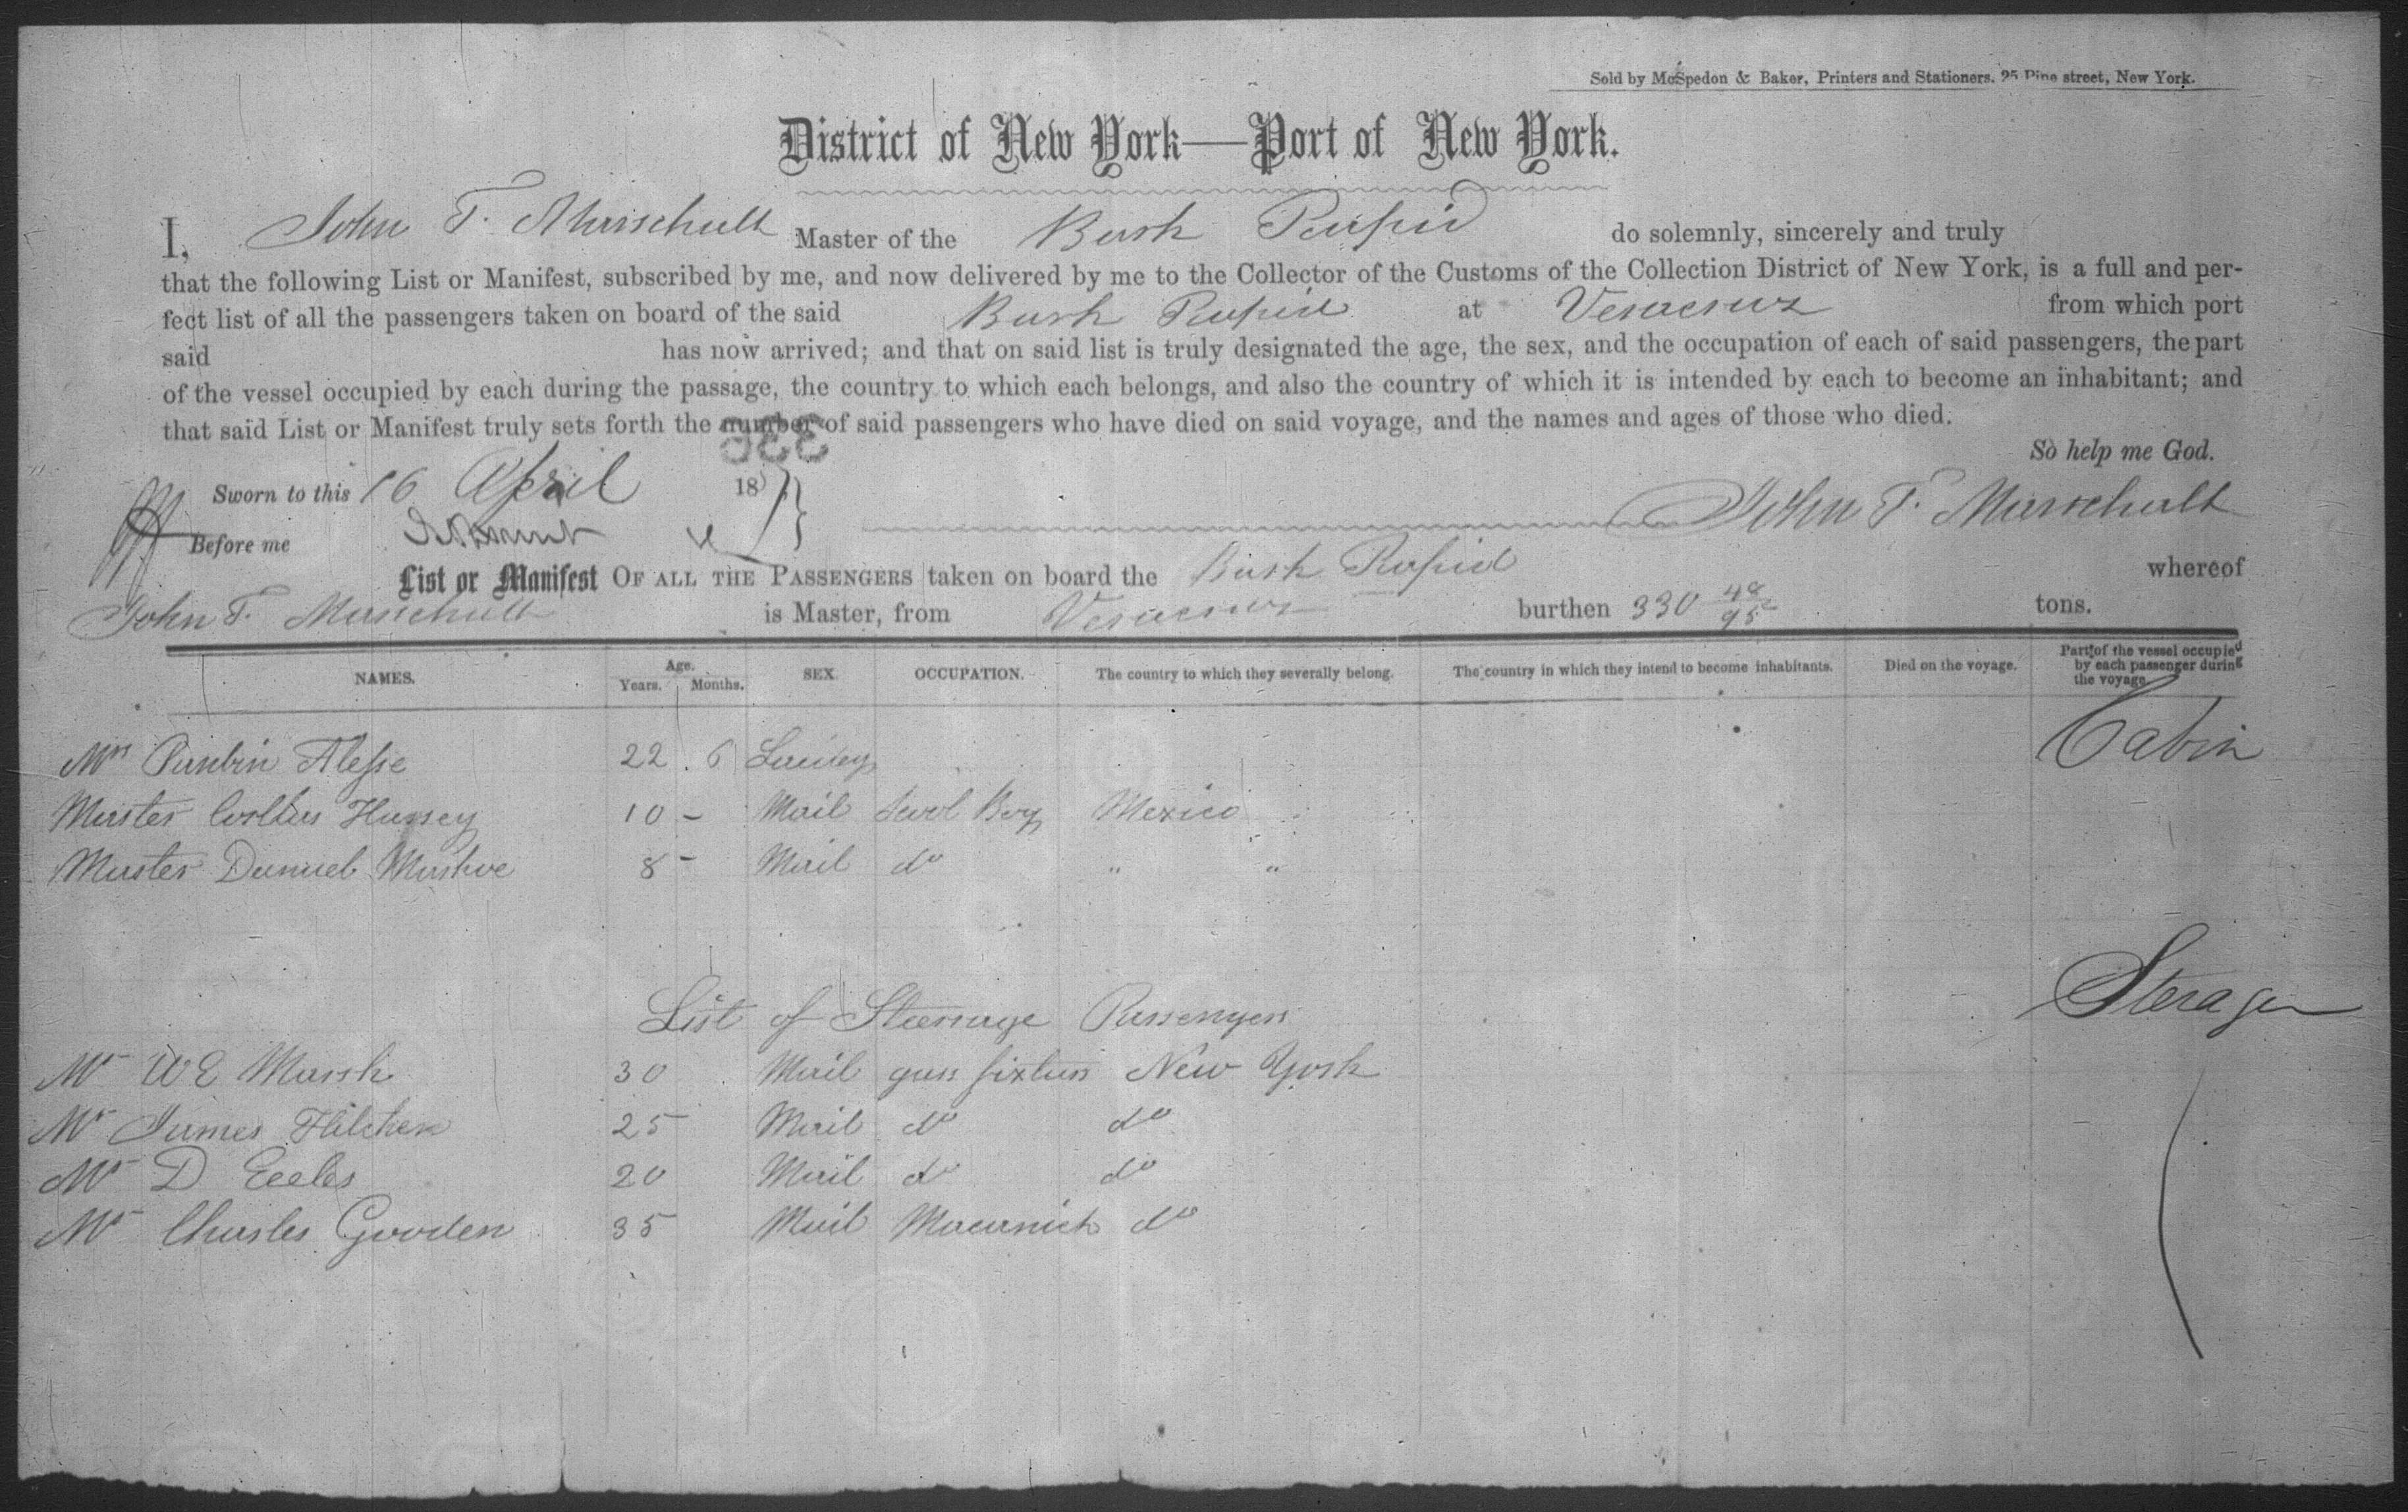 Sold by McSpedon & Baker, Printers and Stationers. 25 Pine street, New York.
District of New York—Port of New York.
I, John F. Marschalk Master of the Bark Rapid do solemnly, sincerely and truly
that the following List or Manifest, subscribed by me, and now delivered by me to the Collector of the Customs of the Collection District of New York, is a full and per-
fect list of all the passengers taken on board of the said Bark Rapid at Veracruz from which port
said has now arrived; and that on said list is truly designated the age, the sex, and the occupation of each of said passengers, the part
of the vessel occupied by each during the passage, the country to which each belongs, and also the country of which it is intended by each to become an inhabitant; and
that said List or Manifest truly sets forth the number of said passengers who have died on said voyage, and the names and ages of those who died.
336
So help me God.
Sworn to this 16 April 18
John F. Marschalk
Before me
List or Manifest OF ALL THE PASSENGERS taken on board the Bark Rapid whereof
John F. Marschalk is Master, from Veracruz burthen 330 48/95 tons.
NAMES. Age. Years. Months. SEX. OCCUPATION. The country to which they severally belong. The country in which they intend to become inhabitants. Died on the voyage. Part of the vessel occupied by each passenger during the voyage.
Mrs 22 6 Cabin
Master Hussey 10 - Mail Scool Boy Mexico
Master Danuel 8 - Mail do " "
List of Steerage Passengers Sterage
Mr W E Marsh 30 Mail gass fixturs New York
Mr James 25 Mail do do
Mr D Eccles 20 Mail do do
Mr Charles Gooden 35 Mail Macanick do